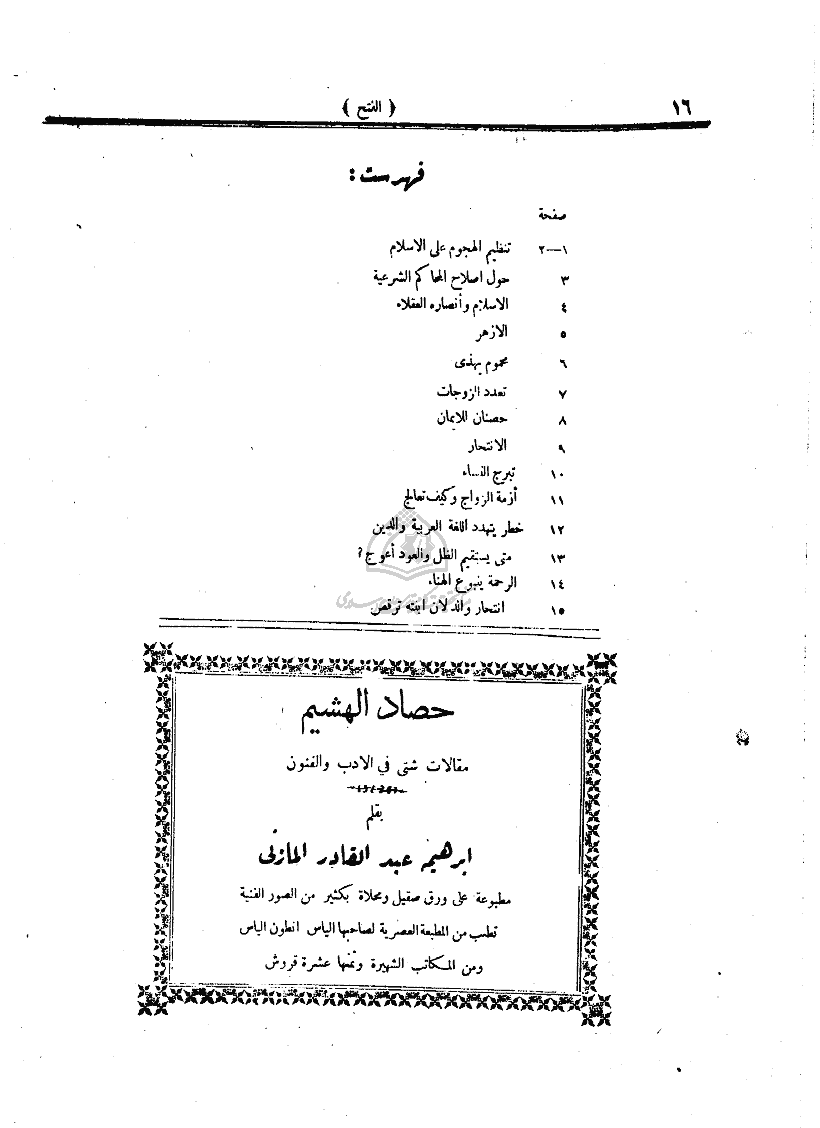 ١٦ ( الفتح )
فهرست :
صفحة
١—٢ تنظيم الهجوم على الاسلام
٣ حول اصلاح المحاكم الشرعية
٤ الاسلام وأنصاره العقلاء
٥ الازهر
٦ محموم يهذى
٧ تعدد الزوجات
٨ حصنان للايمان
٩ الانتحار
١٠ تبرج النساء
١١ أزمة الزواج وكيف تعالج
١٢ خطر يتهدد اللغة العربية والدين
١٣ متى يستقيم الظل والعود أعوج ؟
١٤ الرحمة ينبوع الهناء
١٥ انتحار والد لان ابنته ترقص
حصاد الهشيم
مقالات شتى في الادب والفنون
بقلم
ابرهيم عبد القادر المازنى
مطبوعة على ورق صقيل ومحلاة بكثير من الصور الفنية
تطلب من المطبعة العصرية لصاحبها الياس انطون الياس
ومن المكاتب الشهيرة وثمنها عشرة قروش